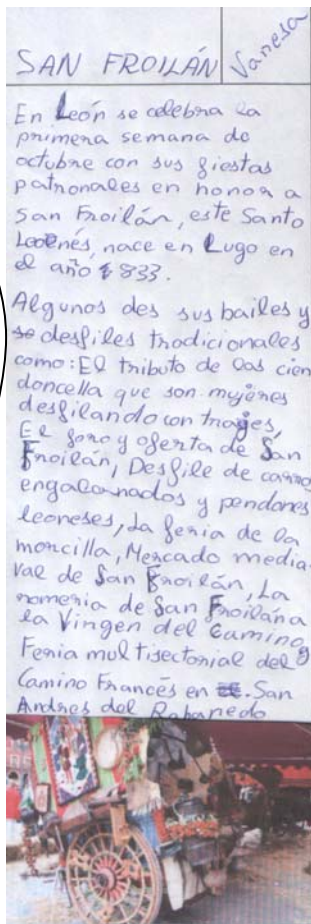 SAN FROILÁN
Vanesa
En León se celebra la
primera semana de
octubre con sus fiestas
patronales en honor a
San Froilán, este Santo
Leonés, nace en Lugo en
el año 833.
Algunos des sus bailes y
desfiles tradicionales
como: El tributo de las cien
doncella que son mujeres
desfilando con trajes,
El foro y oferta de San
Froilán, Desfile de carros
engalanados y pendones
leoneses, La feria de la
morcilla, Mercado media-
val de San Froilán, La
romeria de San Froilán a
la Virgen del Camino y
Feria multisectorial del
Camino Francés en San
Andres del Rabanedo